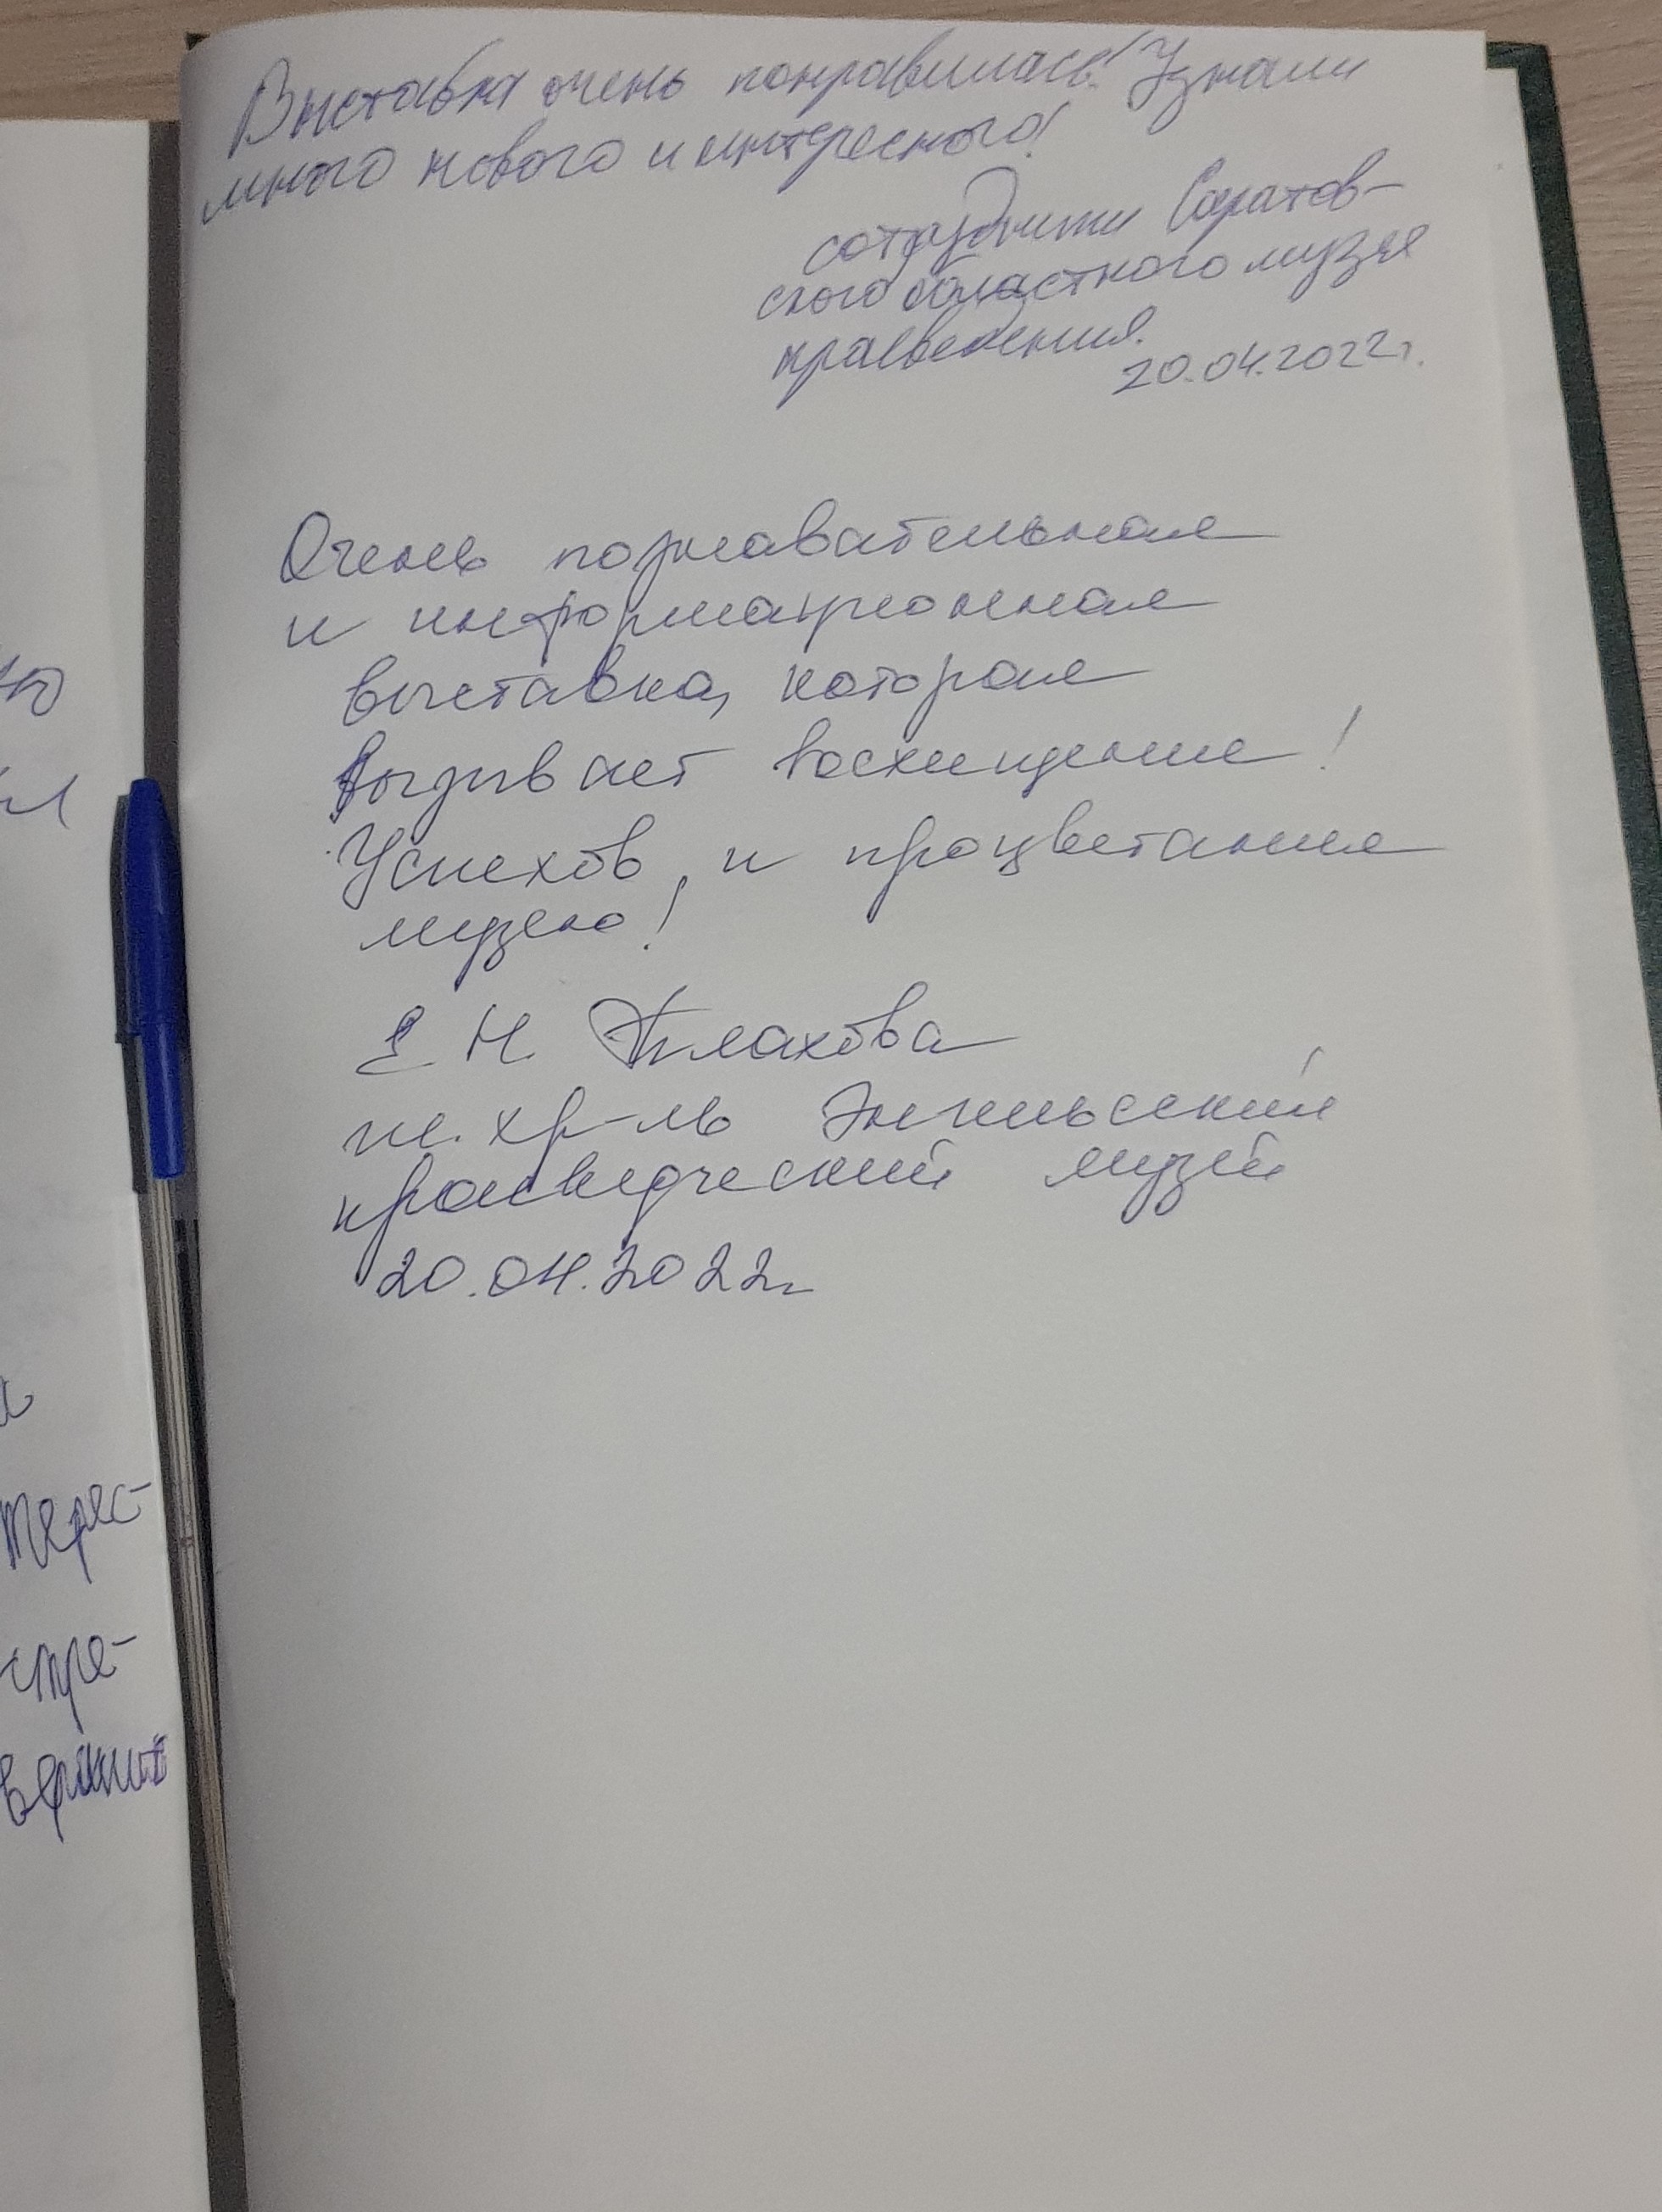 Выставка очень понравилась! Узнали
много нового и интересного!
сотрудники Саратов-
ского областного музея
краеведения.
20.04.2022г.
Очень познавательная
и информационная
выставка, которая
вызывает восхищение!
Успехов, и процветания
музею!
Е. Н. Плахова
гл. хр-ль Энгельсский
краеведческий музей
20.04.2022г
ю
терес-